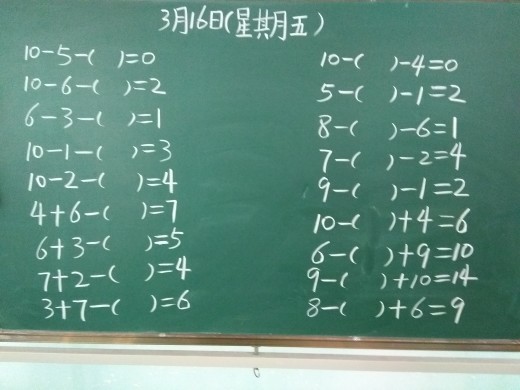 3月16日(星其月五)
10-5-( )=0
10-6-( )=2
6-3-( )=1
10-1-( )=3
10-2-( )=4
4+6-( )=7
6+3-( )=5
7+2-( )=4
3+7-( )=6
10-( )-4=0
5-( )-1=2
8-( )-6=1
7-( )-2=4
9-( )-1=2
10-( )+4=6
6-( )+9=10
9-( )+10=14
8-( )+6=9